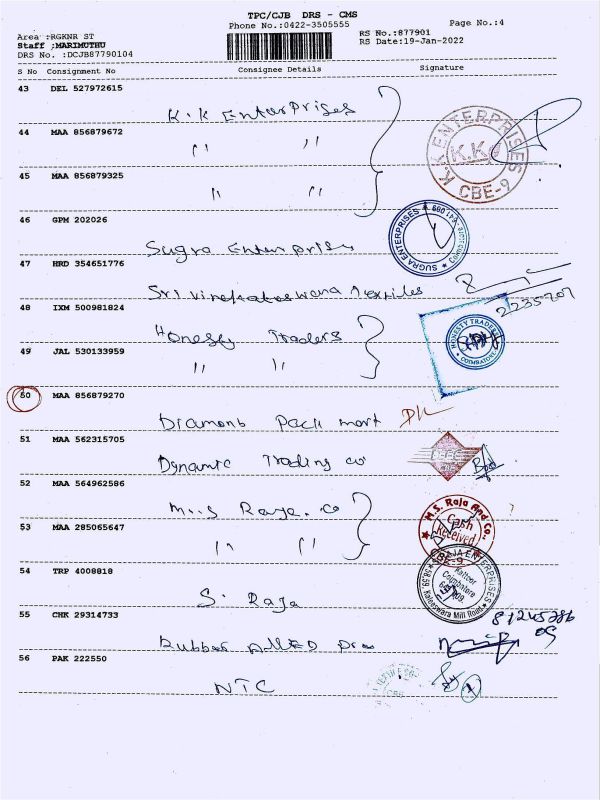 TPC/CJB DRS - CMS
Phone No.:0422-3505555 Page No.:4
Area :RGKNR ST RS No.:877901
Staff ;MARIMUTHU RS Date:19-Jan-2022
DRS No. :DCJB87790104
S No Consignment No Consignee Details Signature
43 DEL 527972615
K.K Enterprises
44 MAA 856879672
" "
K K ENTERPRISES K.K. CBE-9
45 MAA 856879325
" "
46 GPM 202026
Sugra Enterprises
SUGRA ENTERPRISES COIMBATORE 641 009
47 HRD 354651776
Sri Textiles
2235707
48 IXM 500981824
Honesty Traders
HONESTY TRADERS COIMBATORE
49 JAL 530133959
" "
50 MAA 856879270
Diamonb Pack mart
51 MAA 562315705
Dynamic Trading co
52 MAA 564962586
M.S Raja. Co
M.S. Raja And Co., Cash Received CBE-9
53 MAA 285065647
" "
54 TRP 4008818
S. Raja
RAJA ENTERPRISES Rattoor Coimbatore Kaleeswara Mill Road
55 CHK 29314733
Rubber
56 PAK 222550
NTC